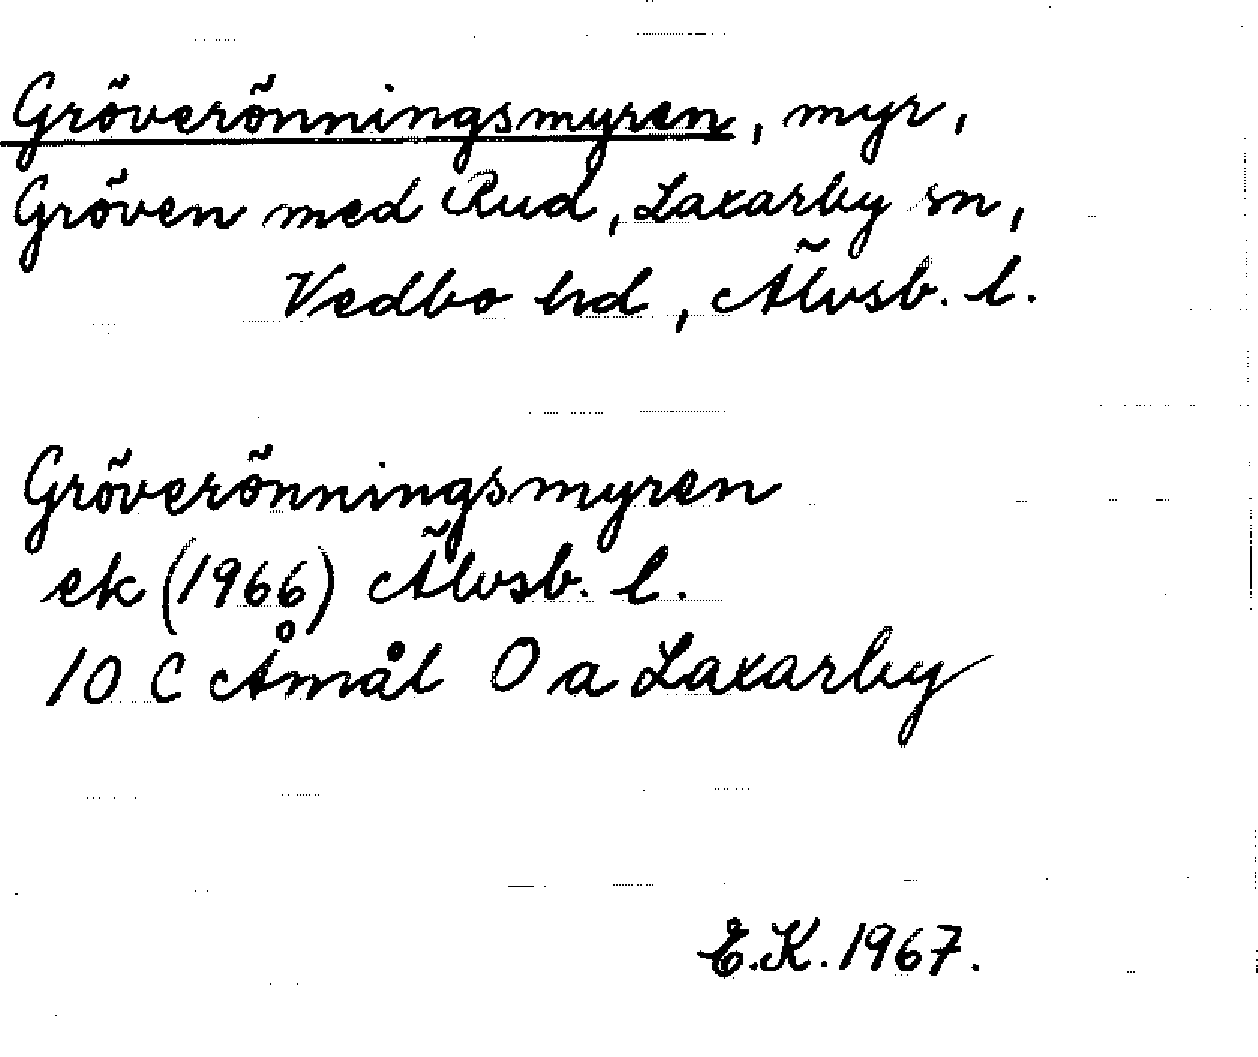 Gröverönningsmyren, myr,
Gröven med Rud, Laxarby sn,
Vedbo hd, Älvsb. l.
Gröverönningsmyren
ek (1966) Älvsb. l.
10 C Åmål O a Laxarby
E.K. 1967.